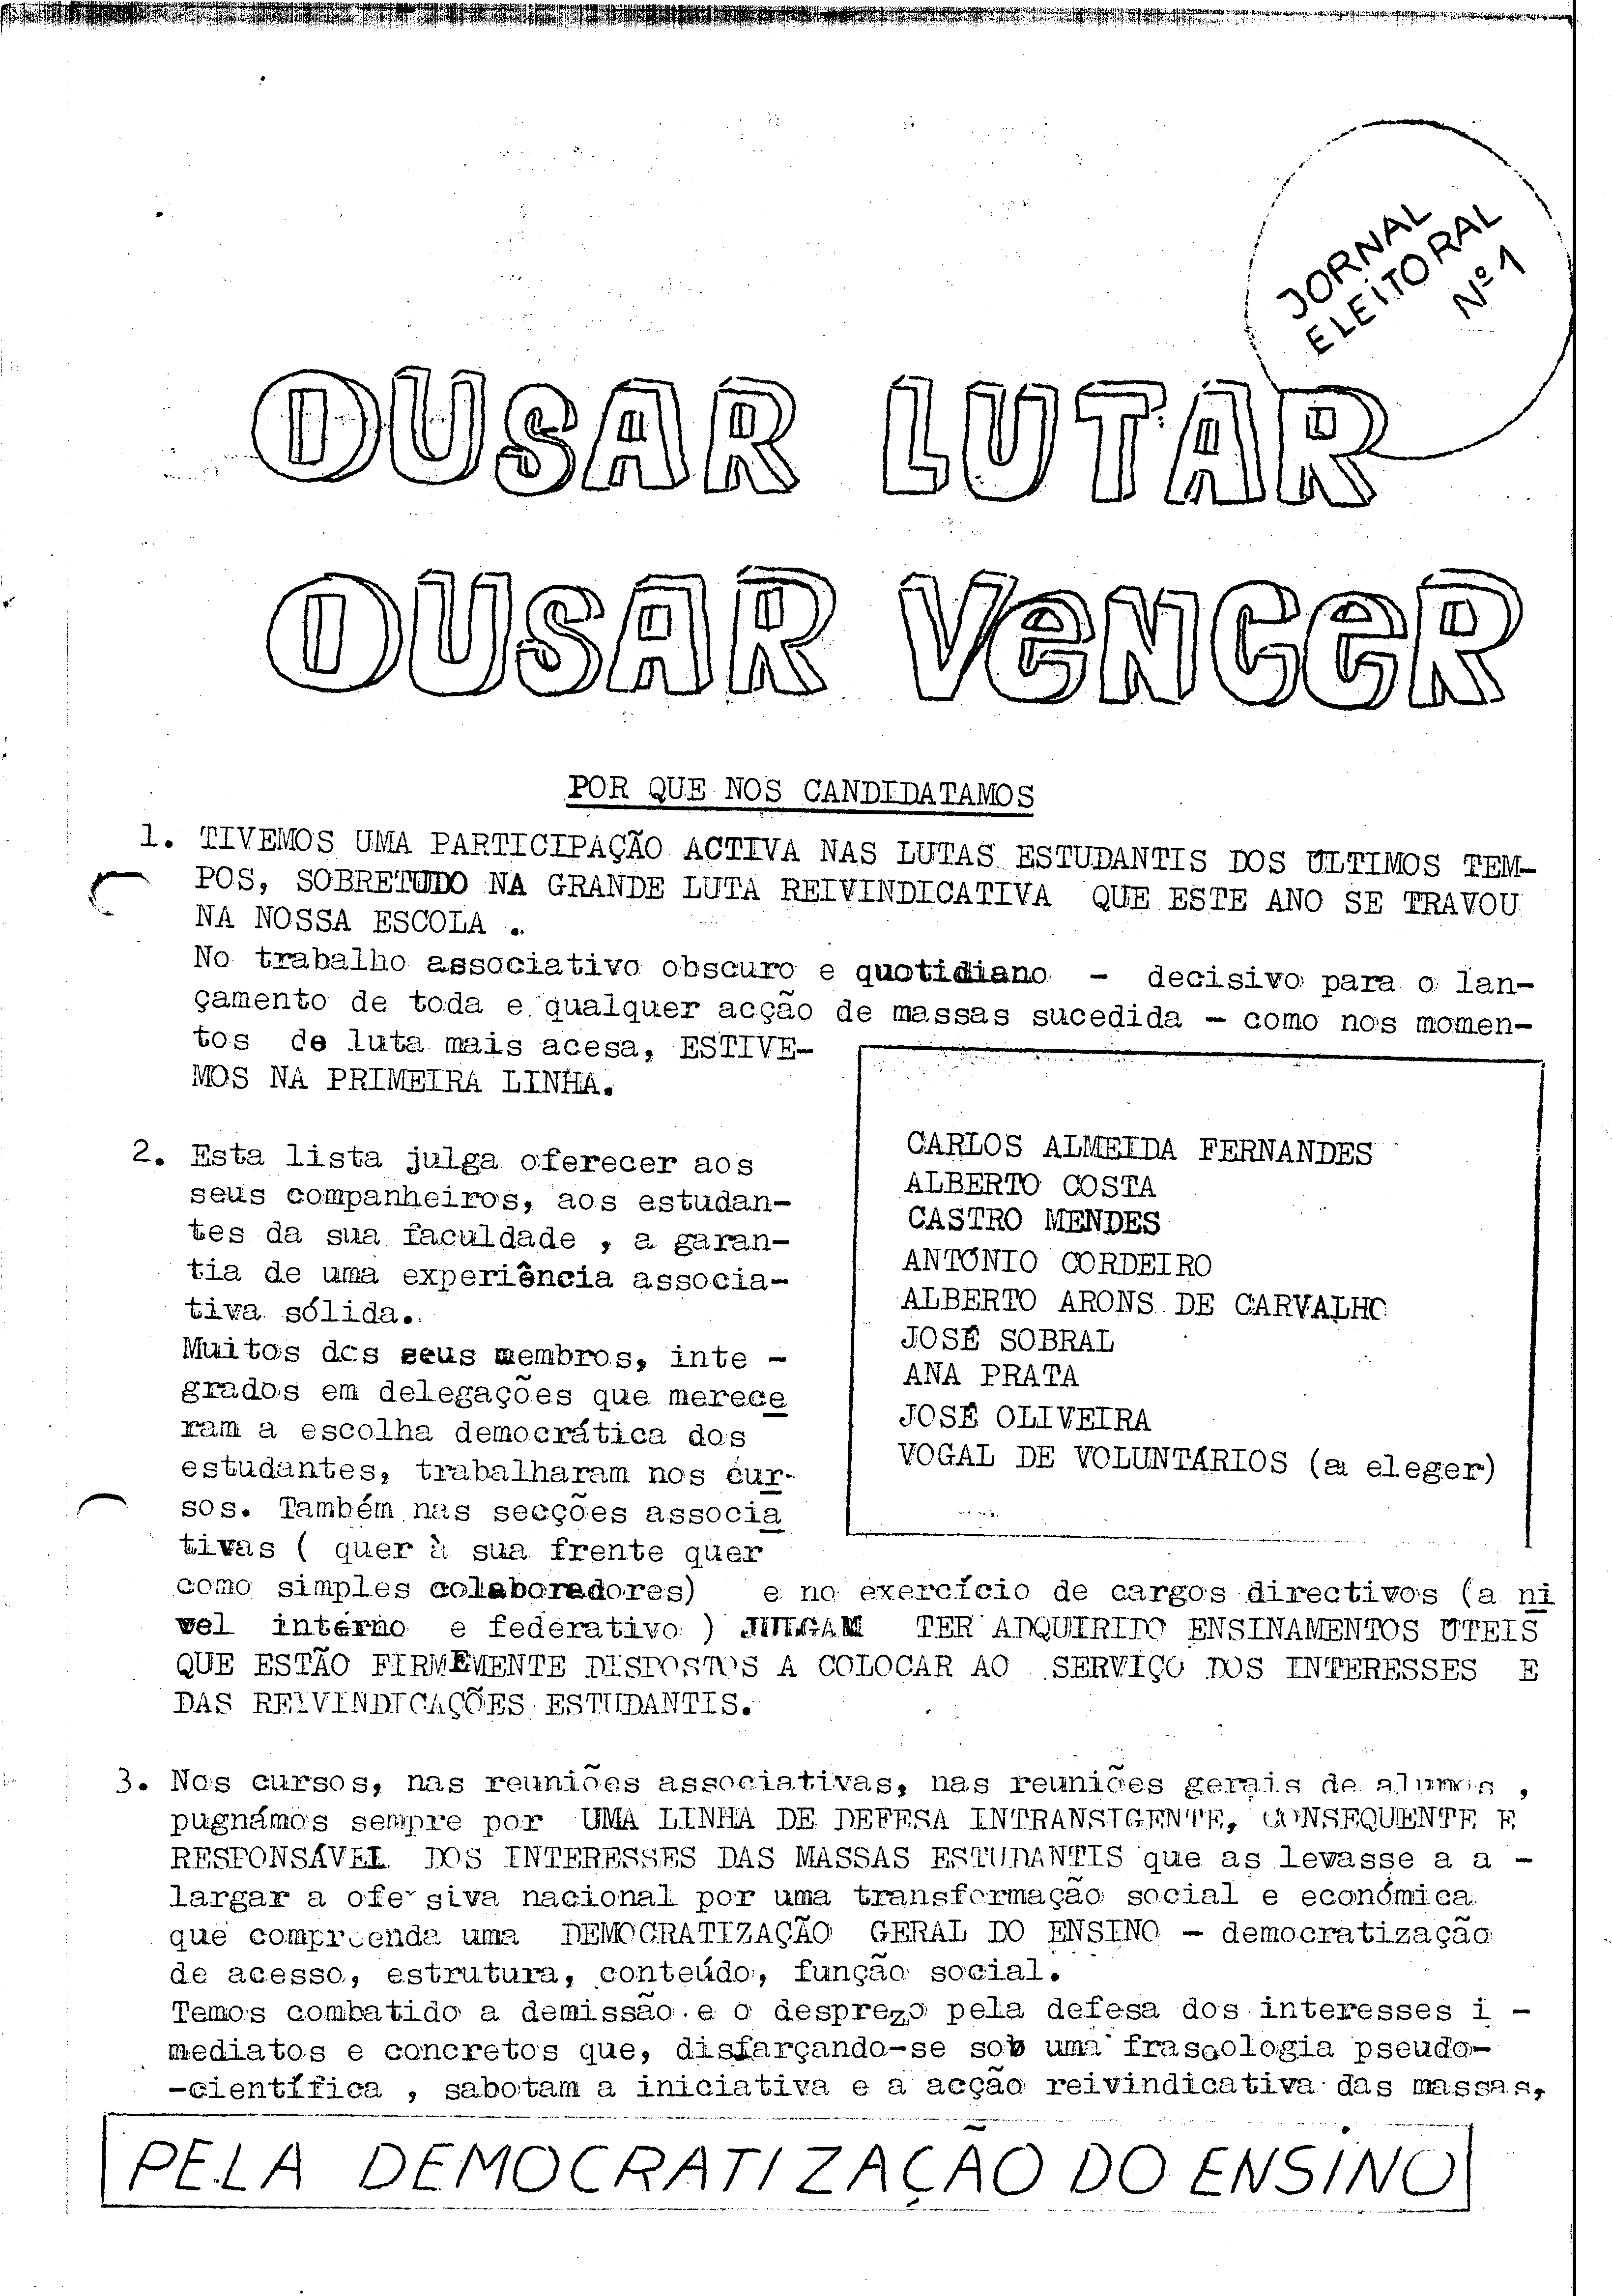 JORNAL
ELEITORAL
Nº 1
OUSAR LUTAR
OUSAR VENCER
POR QUE NOS CANDIDATAMOS
1. TIVEMOS UMA PARTICIPAÇÃO ACTIVA NAS LUTAS ESTUDANTIS DOS ÚLTIMOS TEM-
POS, SOBRETUDO NA GRANDE LUTA REIVINDICATIVA QUE ESTE ANO SE TRAVOU
NA NOSSA ESCOLA .
No trabalho associativo obscuro e quotidiano - decisivo para o lan-
çamento de toda e qualquer acção de massas sucedida - como nos momen-
tos de luta mais acesa, ESTIVE-
MOS NA PRIMEIRA LINHA.
2. Esta lista julga oferecer aos
seus companheiros, aos estudan-
tes da sua faculdade , a garan-
tia de uma experiência associa-
tiva sólida.
Muitos dos seus membros, inte -
grados em delegações que merece
ram a escolha democrática dos
estudantes, trabalharam nos cur-
sos. Também nas secções associa
tivas ( quer à sua frente quer
como simples colaboradores) e no exercício de cargos directivos (a ni
vel interno e federativo ) JULGAM TER ADQUIRIDO ENSINAMENTOS ÚTEIS
QUE ESTÃO FIRMEMENTE DISPOSTOS A COLOCAR AO SERVIÇO DOS INTERESSES E
DAS REIVINDICAÇÕES ESTUDANTIS.
CARLOS ALMEIDA FERNANDES
ALBERTO COSTA
CASTRO MENDES
ANTÓNIO CORDEIRO
ALBERTO ARONS DE CARVALHO
JOSÉ SOBRAL
ANA PRATA
JOSÉ OLIVEIRA
VOGAL DE VOLUNTÁRIOS (a eleger)
3. Nos cursos, nas reuniões associativas, nas reuniões gerais de alunos ,
pugnámos sempre por UMA LINHA DE DEFESA INTRANSIGENTE, CONSEQUENTE E
RESPONSÁVEL DOS INTERESSES DAS MASSAS ESTUDANTIS que as levasse a a -
largar a ofe siva nacional por uma transformação social e económica
que compreenda uma DEMOCRATIZAÇÃO GERAL DO ENSINO - democratização
de acesso, estrutura, conteúdo, função social.
Temos combatido a demissão e o desprezo pela defesa dos interesses i -
mediatos e concretos que, disfarçando-se sob uma fraseologia pseudo-
-científica , sabotam a iniciativa e a acção reivindicativa das massas,
PELA DEMOCRATIZAÇÃO DO ENSINO